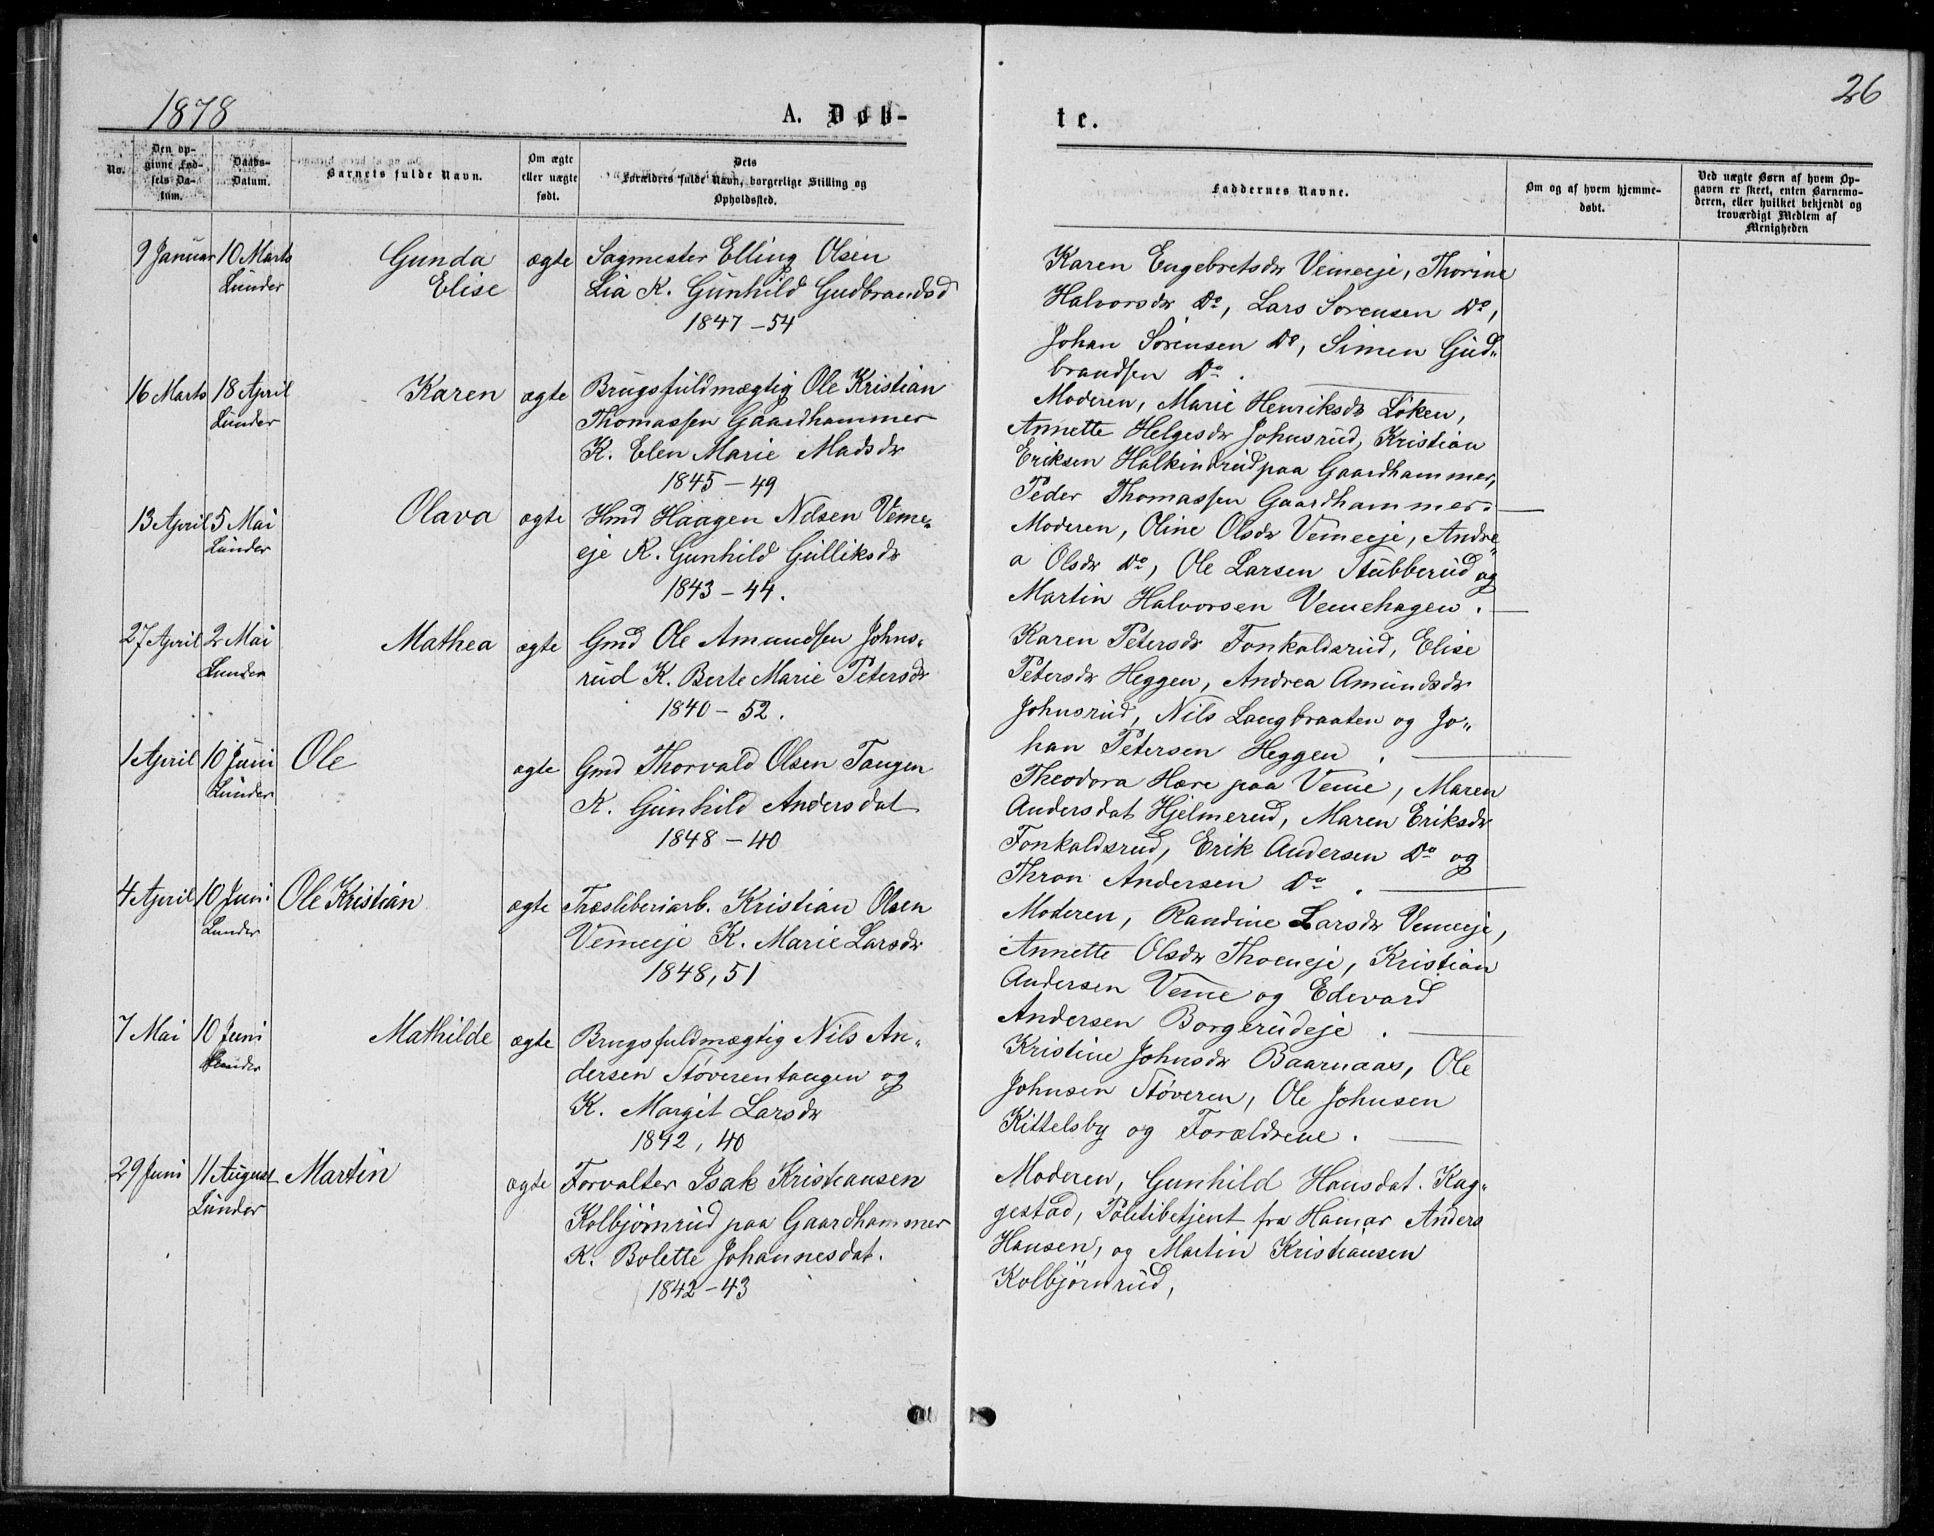 1878
A. Døb-
te.
26
No.
Den op-
givne Fød-
sels Da-
tum.
Daabs-
Datum.
Barnets fulde Navn.
Om ægte
eller uægte
født.
Dets
Forældres fulde Navn, borgerlige Stilling og
Opholdssted.
Faddernes Navne.
Om og af hvem hjemme-
døbt.
Ved uægte Børn af hvem Op-
gaven er skeet, enten Barnemo-
deren, eller hvilket bekjendt og
troværdigt Medlem af
Menigheden
9 Januar 10 Marts
Lunder
Gunda
Elise
ægte
Sagmester Elling Olsen
Lia K. Gunhild Gudbrandsd
1847-54
Karen Engebretsdr Vemeeje, Thorine
Halvorsdr Do, Lars Sørensen Do,
Johan Sørensen Do, Simen Gud-
brandsen Do.
16 Marts 18 April
Lunder
Karen
ægte
Brugsfuldmægtig Ole Kristian
Thomassen Gaardhammer
K. Elen Marie Madsdr
1845-49
Moderen, Marie Henriksdr Løken,
Annette Helgesdr Johnsrud, Kristian
Eriksen Halkinrud paa Gaardhammer,
Peder Thomassen Gaardhammer.
13 April 5 Mai
Lunder
Olava
ægte
Hmd Haagen Nilsen Veme-
eje K. Gunhild Gulliksdr
1843-44.
Moderen, Oline Olsdr Vemeeje, Andre-
a Olsdr Do, Ole Larsen Stubberud og
Martin Halvorsen Vemehagen.
27 April 2 Mai
Lunder
Mathea
ægte
Gmd Ole Amundsen Johns-
rud K. Berte Marie Petersdr
1840-52.
Karen Petersdr Fonkaldsrud, Elise
Petersdr Heggen, Andrea Amundsdr
Johnsrud, Nils Langbraaten og Jo-
han Petersen Heggen.
1 April 10 Juni
Lunder
Ole
ægte
Gmd Thorvald Olsen Tangen
K. Gunhild Andersdat
1848-40
Theodora Hære paa Veme, Maren
Andersdat Hjelmerud, Maren Eriksdr
Fonkaldsrud, Erik Andersen Do og
Thron Andersen Do.
4 April 10 Juni
Lunder
Ole Kristian
ægte
Træsliberiarb. Kristian Olsen
Vemeeje K. Marie Larsdr
1848, 51
Moderen, Randine Larsdr Vemeeje,
Annette Olsdr Thoeneje, Kristian
Andersen Veme og Edevard
Andersen Borgerudeje.
7 Mai 10 Juni
Lunder
Mathilde
ægte
Brugsfuldmægtig Nils An-
dersen Støverentangen og
K. Margit Larsdr
1842, 40
Kristine Johnsdr Baarnaas, Ole
Johnsen Støveren, Ole Johnsen
Kittelsby og Forældrene.
29 Juni 11 August
Lunder
Martin
ægte
Forvalter Isak Kristiansen
Kolbjørnrud paa Gaardhammer
K. Bolette Johannesdat.
1842-43
Moderen, Gunhild Hansdat. Kag-
gestad, Politibetjent fra Hamar Anders
Hansen, og Martin Kristiansen
Kolbjørnrud,